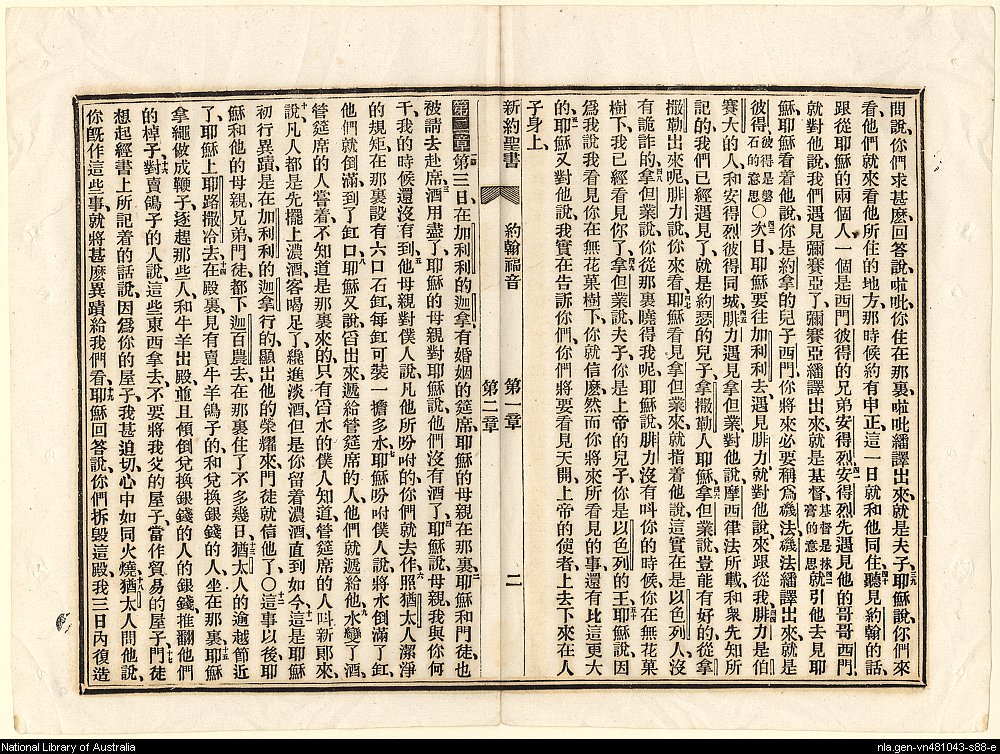 問說、你們求甚麼、回答說、啦吡、你住在那裏、啦吡繙譯出來就是夫子、耶穌說、你們來
看、他們就來看他所住的地方、那時候約有申正、這一日就和他同住、聽見約翰的話、
跟從耶穌的兩個人、一個是西門彼得的兄弟安得烈、安得烈先遇見他的哥哥西門、
就對他說、我們遇見彌賽亞了、彌賽亞繙譯出來就是基督、基督是抹膏的意思就引他去見耶
穌、耶穌看着他說、你是約拿的兒子西門、你將來必要稱爲磯法、磯法繙譯出來就是
彼得、彼得是磐石的意思〇次日、耶穌要往加利利去、遇見腓力、就對他說、來跟從我、腓力是伯
賽大的人、和安得烈彼得同城、腓力遇見拿但業、對他說、摩西律法所載、和衆先知所
記的、我們已經遇見了、就是約瑟的兒子拿撒勒人耶穌、拿但業說、豈能有好的從拿
撒勒出來呢、腓力說、你來看、耶穌看見拿但業來、就指着他說、這實在是以色列人、沒
有詭詐的、拿但業說、你從那裏曉得我呢、耶穌說、腓力沒有呌你的時候、你在無花菓
樹下、我已經看見你了、拿但業說、夫子、你是上帝的兒子、你是以色列的王、耶穌說、因
爲我說我看見你在無花菓樹下、你就信麼、然而你將來所看見的事、還有比這更大
的、耶穌又對他說、我實在告訴你們、你們將要看見天開、上帝的使者、上去下來在人
子身上、
新約聖書 約翰福音 第一章 第二章 二
第二章第三日、在加利利的迦拿有婚姻的筵席、耶穌的母親在那裏、耶穌和門徒也
被請去赴席、酒用盡了、耶穌的母親對耶穌說、他們沒有酒了、耶穌說、母親、我與你何
干、我的時候還沒有到、他母親對僕人說、凡他所吩咐的、你們就去作、照猶太人潔淨
的規矩、在那裏設有六口石缸、每缸可裝一擔多水、耶穌吩咐僕人說、將水倒滿了缸、
他們就倒滿到了缸口、耶穌又說、舀出來遞給管筵席的人、他們就遞給他、水變了酒、
管筵席的人嘗着、不知道是那裏來的、只有舀水的僕人知道、管筵席的人呌新郎來、
說、凡人都是先擺上濃酒、客喝足了、纔進淡酒、但是你留着濃酒直到如今、這是耶穌
初行異蹟、是在加利利的迦拿行的、顯出他的榮耀來、門徒就信他了〇這事以後、耶
穌和他的母親兄弟門徒、都下迦百農去、在那裏住了不多幾日、猶太人的逾越節近
了、耶穌上耶路撒冷去、在殿裏見有賣牛羊鴿子的、和兌換銀錢的人、坐在那裏、耶穌
拿繩做成鞭子、逐趕那些人和牛羊出殿、並且傾倒兌換銀錢的人的銀錢、推翻他們
的棹子、對賣鴿子的人說、這些東西拿去、不要將我父的屋子當作貿易的屋子、門徒
想起經書上所記着的話說、因爲你的屋子、我甚迫切、心中如同火燒、猶太人問他說、
你旣作這些事、就將甚麼異蹟給我們看、耶穌回答說、你們拆毀這殿、我三日內復造
National Library of Australia
nla.gen-vn481043-s88-e